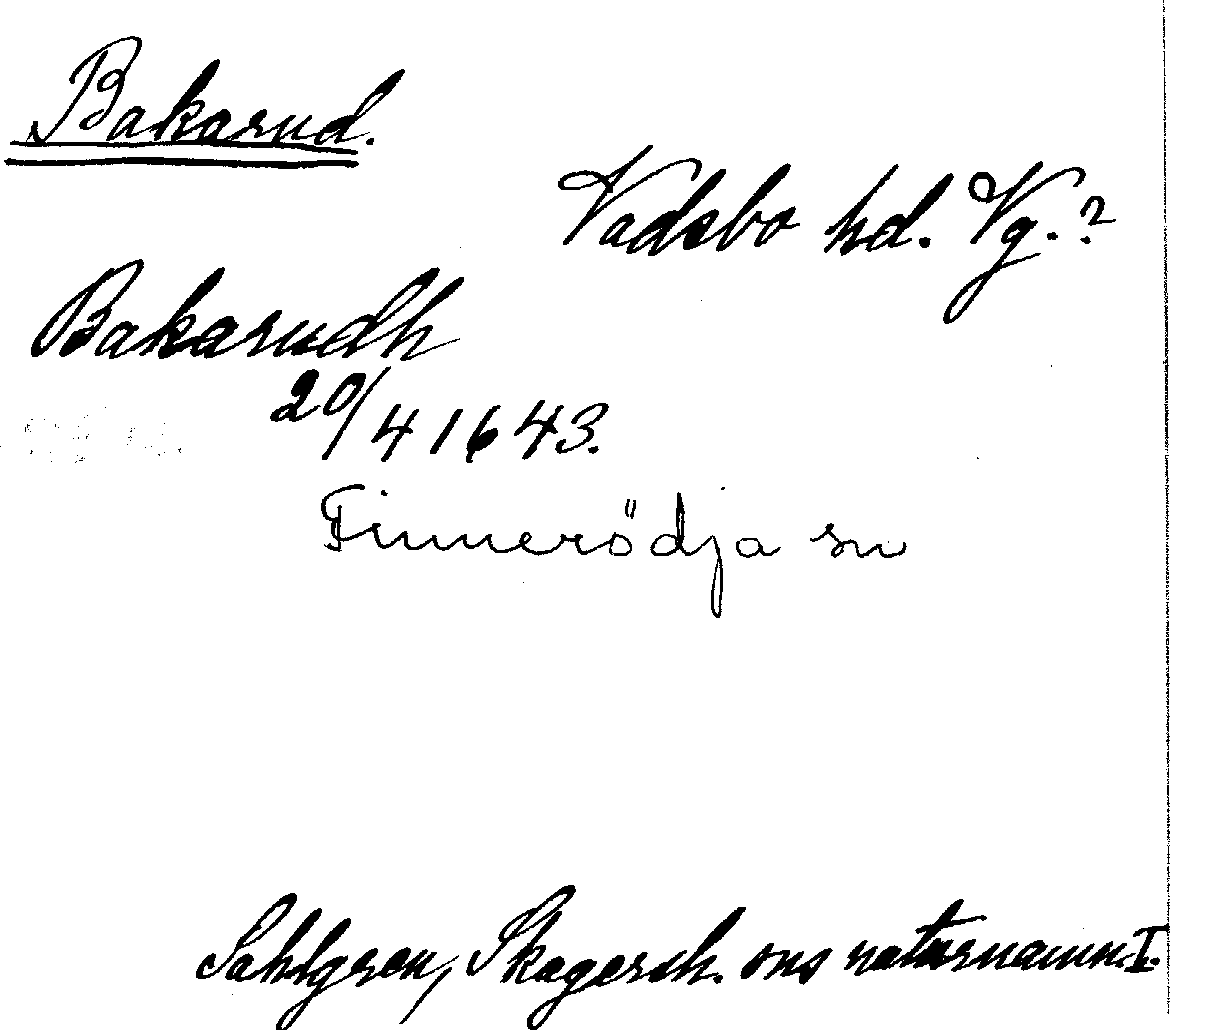 Bakarud.
Vadsbo hd. Vg.?
Bakarudh
20/4 1643.
Finnerödja sn
Sahlgren, Skagersh. ons naturnamn. I.